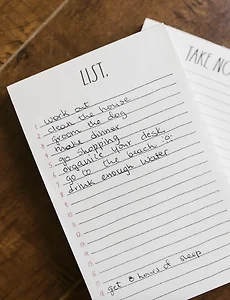 LIST.
TAKE NO
1 work out
2 clean the house
3 groom the dog
4 make dinner
5 go shopping
6 organise your desk
7 go to the beach :o:
8 drink enough water
9
10
11
12
13
14
15
16
17 get 8 hours of sleep
18